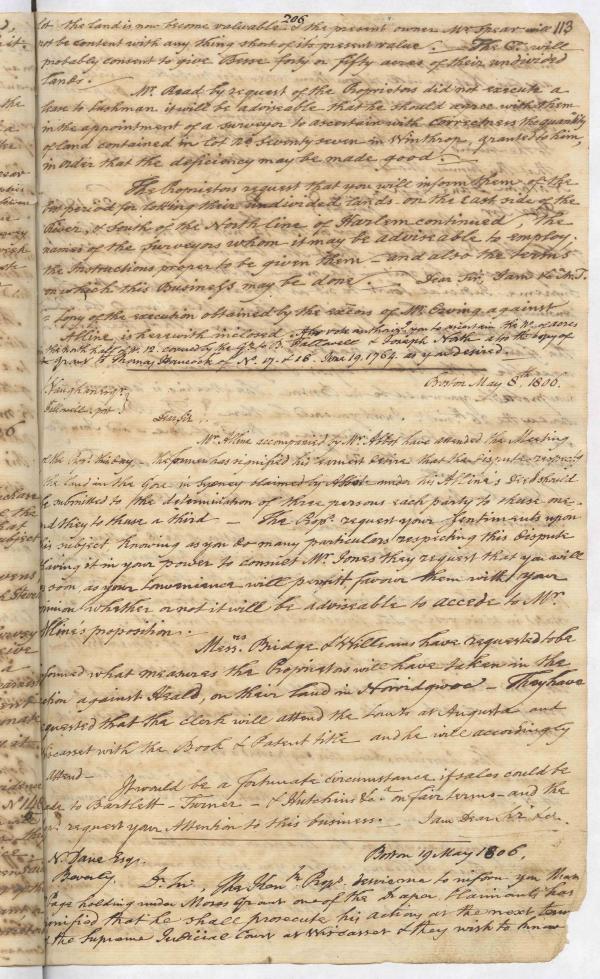 206
113
lot the land is now become valuable & the present owner Mr Spear will
not be content with any thing short of its present value. The Co. will
probably consent to give Besse forty or fifty acres of their undivided
lands.
Mr. Read by request of the Proprietors did not execute a
lease to Cushman it will be adviseable that he should agree with them
in the appointment of a surveyor to ascertain with correctness the quantity
of land contained in Lot No seventy seven in Winthrop, granted to him,
in order that the deficiency may be made good.
The Proprietors request that you will inform them of the
period for lotting their undivided lands on the East side of the
River, & South of the North line of Harlem continued, The
names of the Surveyors whom it may be adviseable to employ.
the Instructions proper to be given them - and also the terms
on which this Business may be done. Dear Sir, I am &c
a Copy of the execution obtained by the exors of Mr. Erving against
Alline is herewith inclosed. Also vote authorizg you to ascertain the No. of acres
in the north half of No. 12. covered by the Gts to B. Hallowell & Joseph North also the copy of
a Grant to Thomas Hancock of No. 17. & 18. June 19. 1764. as you desired.
Boston May 8th 1806.
Vaughan Esqr.
Hallowell. pot.
Dear Sir.
Mr. Alline accompanied by Mr. Abbot have attended the Meeting
of the Props this day - the former has signified his earnest desire that the dispute respectg
the land in the Gore in Sydney claimed by Abbot under his Alline's Deed should
be submitted to the determination of three persons each party to chuse one
and they to chuse a third - The Props. request your Sentiments upon
this subject knowing as you do many particulars respecting this dispute
having it in your power to consult Mr. Jones they request that you will
as soon, as your Convenience will permitt favour them with your
opinion whether or not it will be adviseable to accede to Mr.
Alline's proposition.
Messrs. Bridge & Williams have requested to be
informed what measures the Proprietors will have taken in the
action against Heald, on their land in Norridgwoc - They have
requested that the Clerk will attend the Courts at Augusta and
Wiscasset with the Book & Patent title and he will accordingly
attend -
It would be a fortunate circumstance if sales could be
made to Bartlett - Turner - & Hutchins &ca on fair terms - and the
request your Attention to this business. I am Dear Sir &c.
N. Dane Esqr.
Boston 19 May 1806,
Beverly. Dr. Sir, The Kenk Props. desire me to inform you
Page holding under Moses Grant one of the Draper Claimants has
signified that he shall prosecute his action, at the next term
of the Supreme Judicial Court at Wiscasset & they wish to know